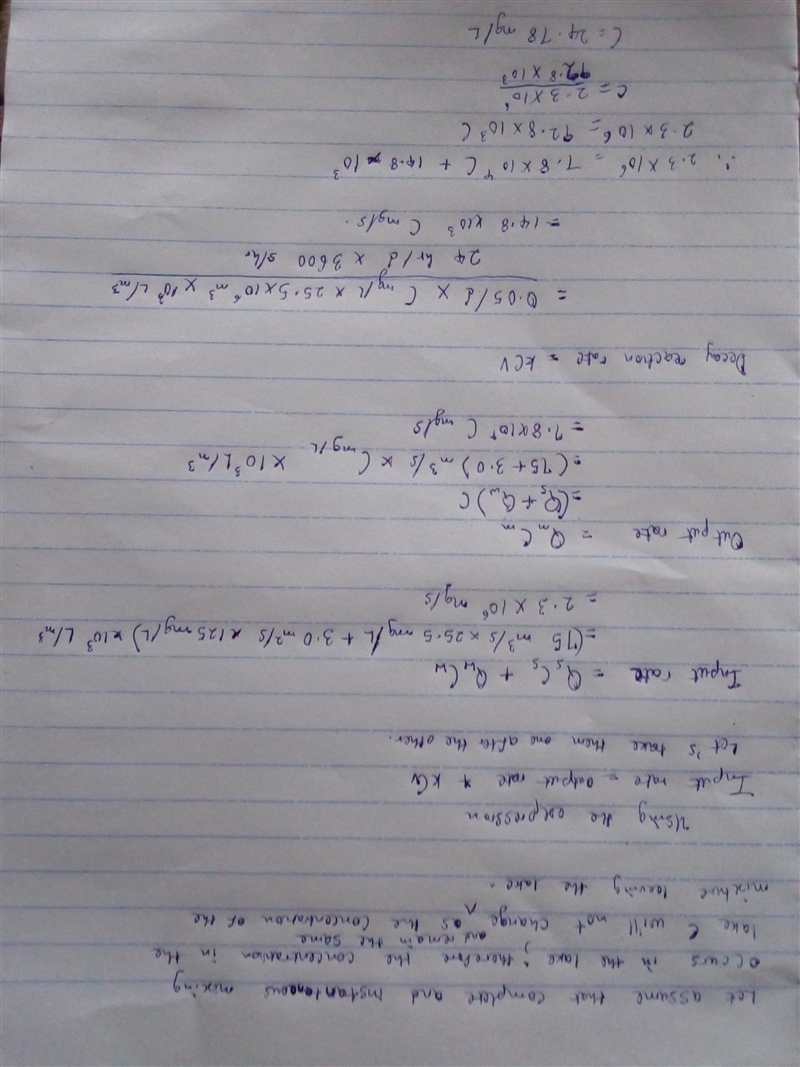 Let assume that complete and instantaneous mixing
occurs in the lake; therefore the concentration in the
lake C will not change and remain the same as the concentration of the
mixture leaving the lake.
Using the expression
Input rate = output rate + KCV
Let's take them one after the other.
Input rate = QsCs + QwCw
=(75 m³/s × 25.5 mg/L + 3.0 m³/s × 125 mg/L) × 10³ L/m³
= 2.3 × 10⁶ mg/s
Output rate = QmCm
=(Qs + Qw) C
=(75 + 3.0) m³/s × C mg/L × 10³ L/m³
= 7.8 × 10⁴ C mg/s
Decay reaction rate = KCV
= 0.05/d × C mg/L × 25.5 × 10⁶ m³ × 10³ L/m³
24 hr/d × 3600 s/hr
= 14.8 × 10³ C mg/s.
∴ 2.3 × 10⁶ = 7.8 × 10⁴ C + 14.8 × 10³
2.3 × 10⁶ = 92.8 × 10³ C
C = 2.3 × 10⁶
92.8 × 10³
C = 24.78 mg/L